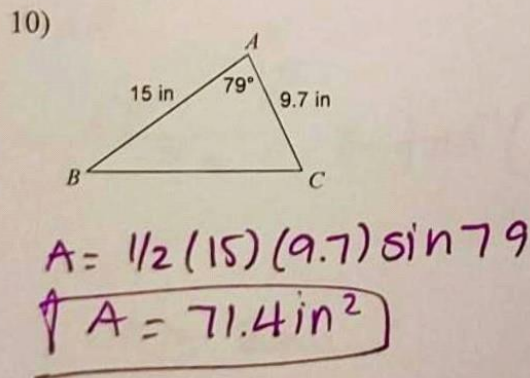 10)
A
15 in
79°
9.7 in
B
C
A = 1/2 (15) (9.7) sin 79
A = 71.4 in²